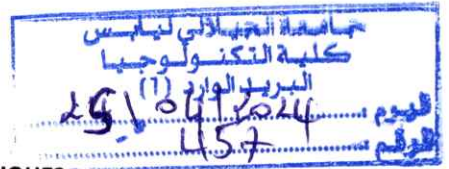 جامعة الجيلالي ليابس
كلية التكنولوجيا
البريد الوارد (1)
اليوم : 25\04\2024
الرقم : 457